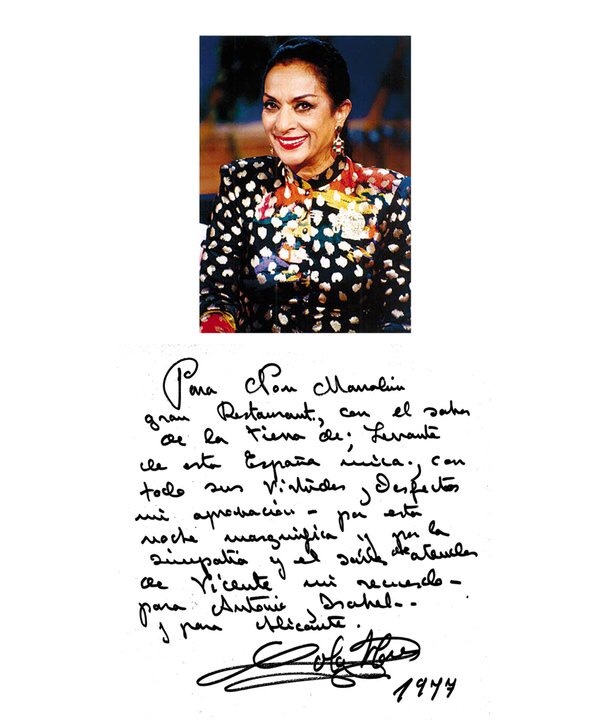 Para Don Manolin
gran Restaurant, con el sabor
de la tierra de; Levante
de esta España única, con
todo sus Virtudes y Desfectos
mi aprobación - por esta
noche maxgnifica y por la
simpatía y el saber de atenderles
de Vicente mi recuerdo -
para Antonio y Isabel -
y para Alicante.
Lola Flores
1977